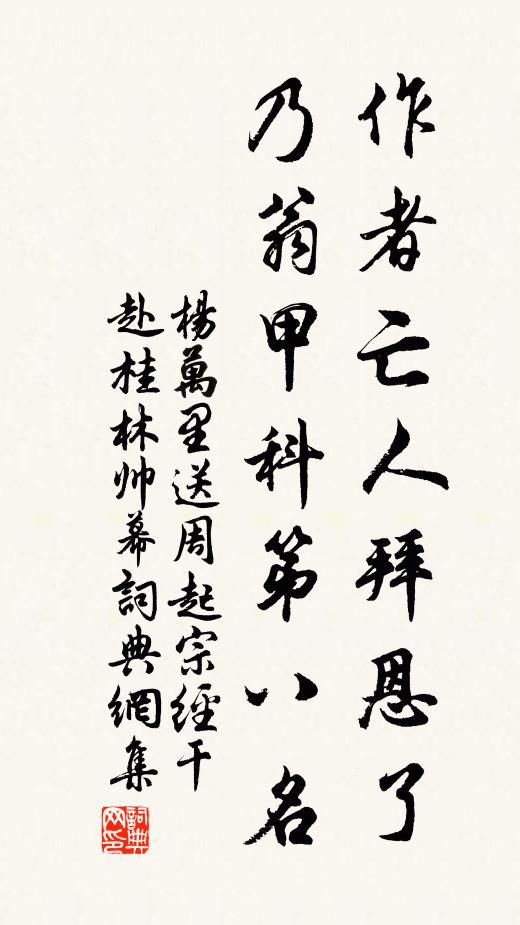 作者亡人拜恩了
乃翁甲科第八名
楊萬里送周起宗經干
赴桂林帅幕詞典網集
詞典网印